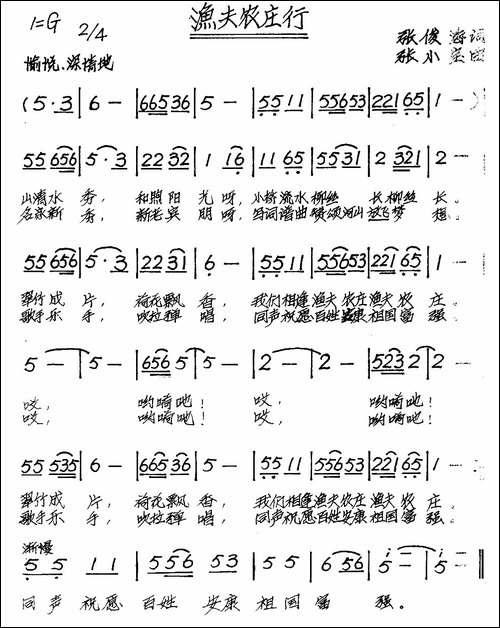 漁夫农庄行
1=G 2/4
张俊海词
张小坚曲
愉悦、深情地
(5·3 | 6 — | 66536 | 5 — | 5511 | 55653 | 22165 | 1 — )
55 656 | 5·3 | 22 32 | 1 16 | 11 65 | 55 31 | 2 321 | 2 —
山清水秀，和煦阳光呀，小桥流水柳丝长柳丝长。
名家新秀，新老宾朋呀，
55 656 | 5·3 | 22 31 | 6 — | 5511 | 55653 | 22165 | 1 —
翠竹成片，荷花飘香，我们相逢漁夫农庄漁夫农庄。
歌手乐手，吹拉弹唱，同声祝愿百姓安康祖国富强。
5 — | 5 — | 656 5 | 5 — | 2 — | 2 — | 523 2 | 2 —
哎，哟嗬吔！哎，哟嗬吔！
哎，哟嗬吔！哎，哟嗬吔！
55 535 | 6 — | 665 36 | 5 — | 55 11 | 55653 | 22165 | 1 —
翠竹成片，荷花飘香，我们相逢漁夫农庄漁夫农庄。
歌手乐手，吹拉弹唱，同声祝愿百姓安康祖国富强。
渐慢
5 5 1 1 | 5 5 6 5 3 | 5 5 6 56 | 5 — | 5 — ‖
同声祝愿百姓安康祖国富强。